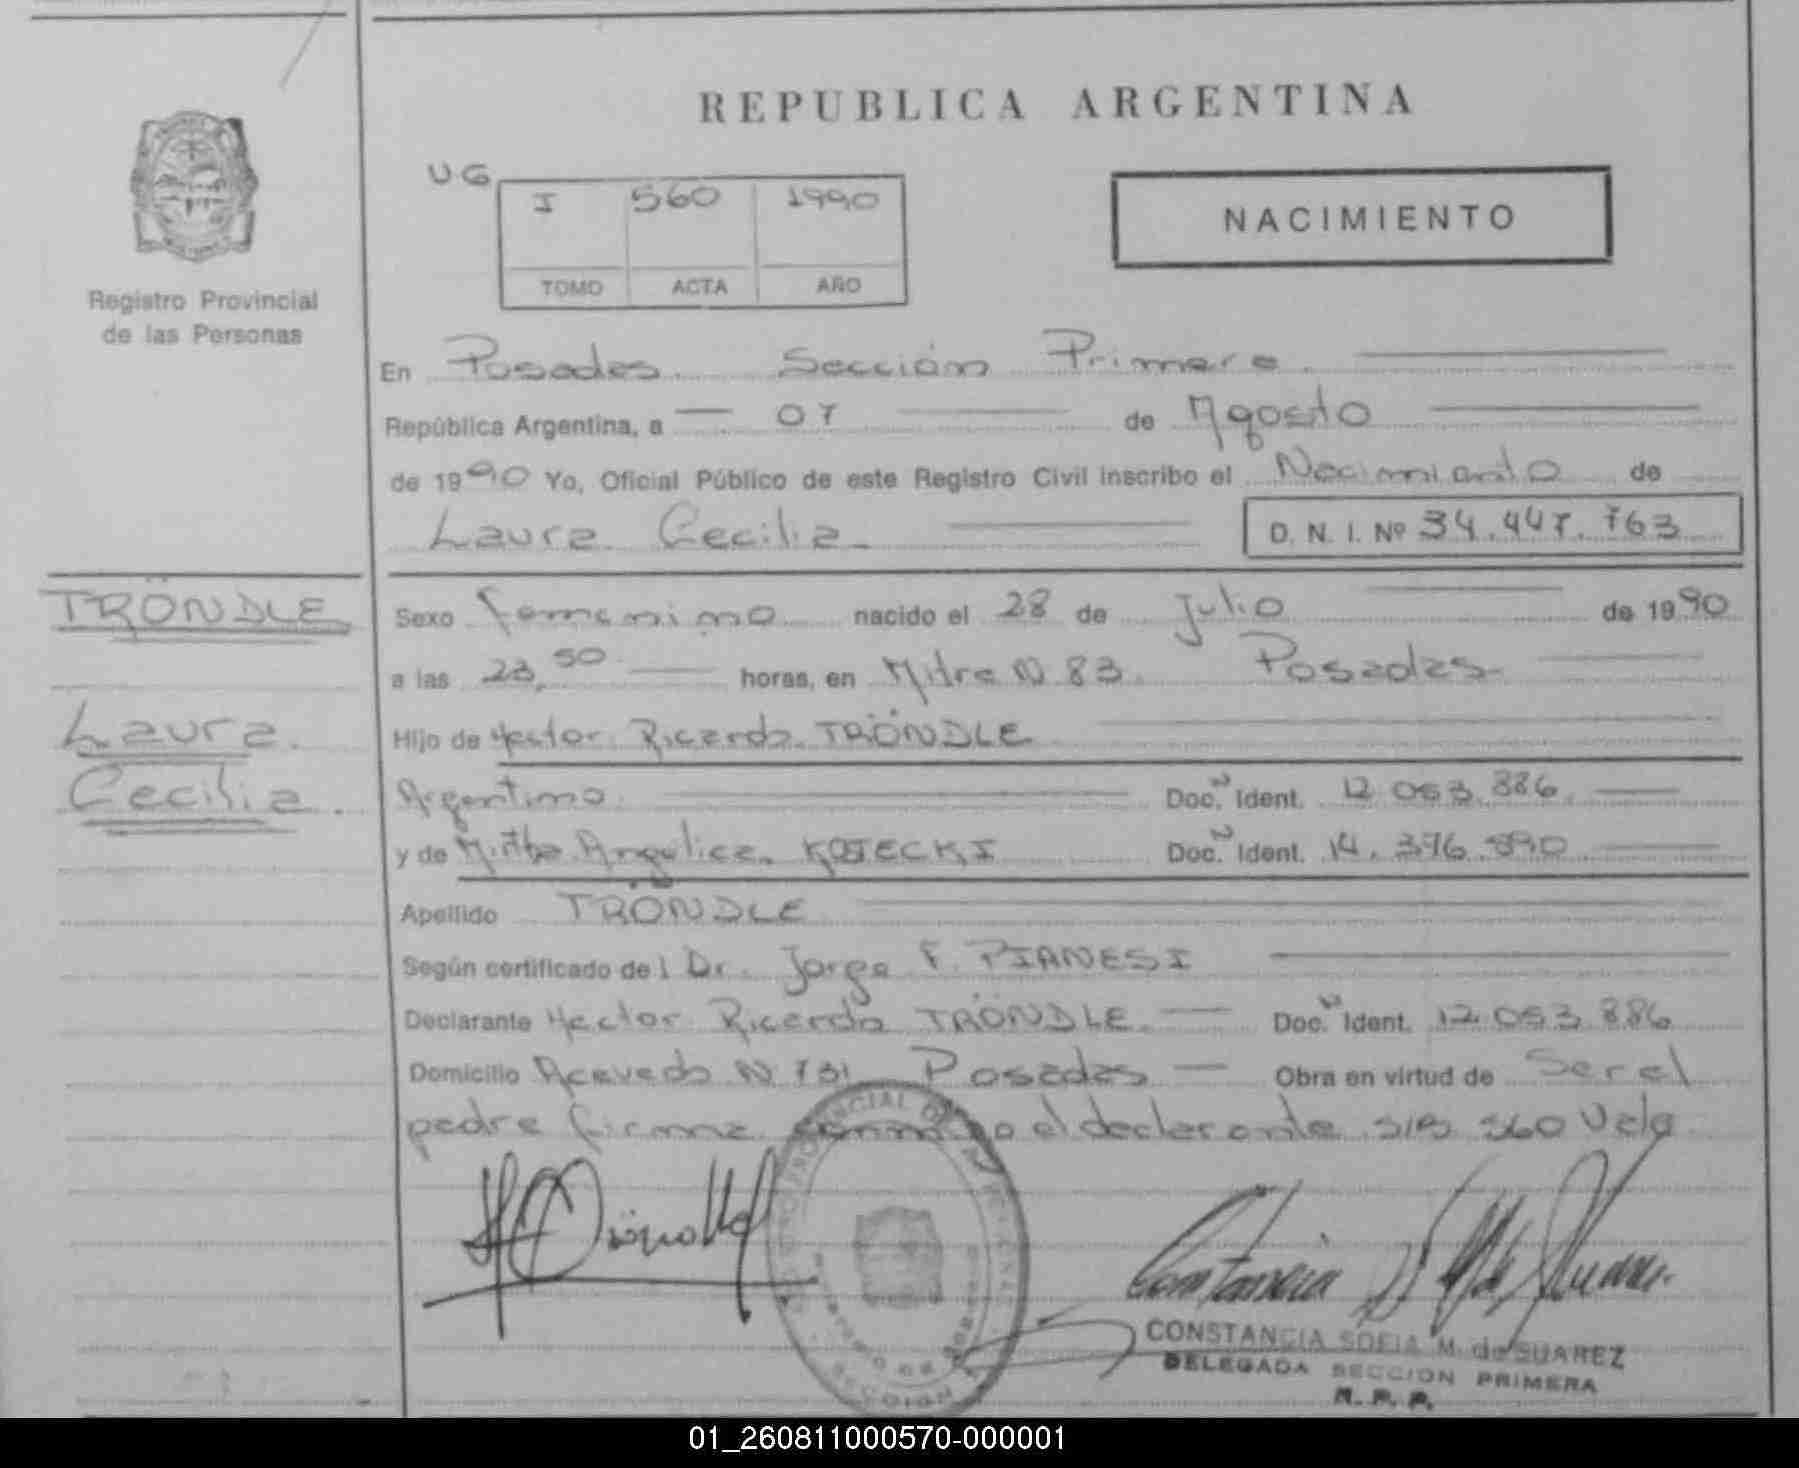 REPUBLICA ARGENTINA
UG
I 560 1990
TOMO ACTA AÑO
NACIMIENTO
Registro Provincial
de las Personas
En Posadas Sección Primera
República Argentina, a 07 de Agosto
de 1990 Yo, Oficial Público de este Registro Civil inscribo el Nacimiento de
Laura Cecilia
D. N. I. Nº 34.447.763
TRÖNDLE
Laura
Cecilia
Sexo femenino nacido el 28 de Julio de 1990
a las 23,50 horas, en Mitre N 83 Posadas
Hijo de Hector Ricardo TRÖNDLE
Argentino Doc. N Ident. 12.053.886
y de Mirtha Angelica KOTECKI Doc. N Ident. 14.376.890
Apellido TRÖNDLE
Según certificado del Dr. Jorge F. PIANESI
Declarante Hector Ricardo TRÖNDLE Doc. N Ident. 12.053.886
Domicilio Acevedo N 731 Posadas Obra en virtud de Ser el
padre firma conmigo el declarante S/B 560 Vale
CONSTANCIA SOFIA M. de SUAREZ
DELEGADA SECCION PRIMERA
R. P. P.
01_260811000570-000001